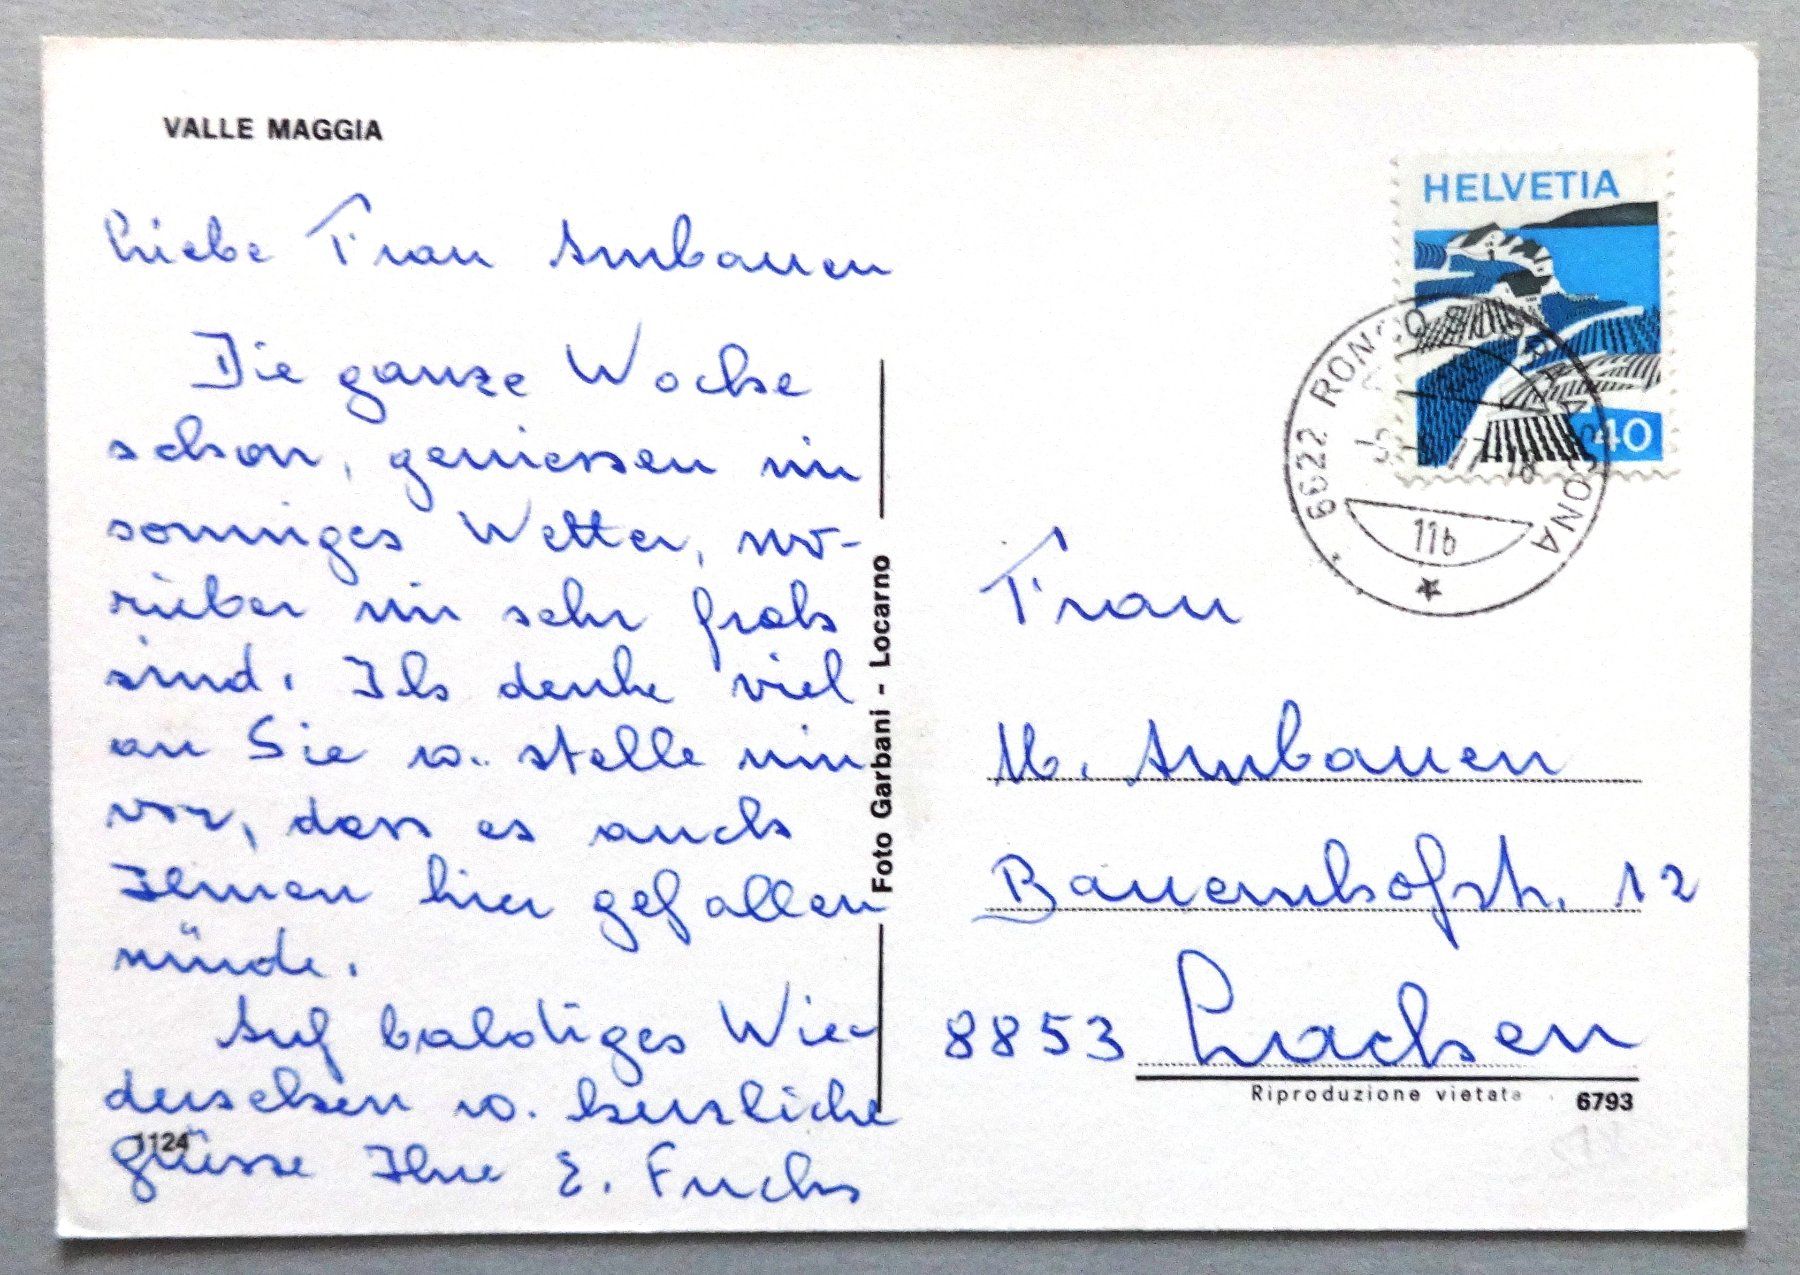 VALLE MAGGIA
Liebe Frau Ambauen
Die ganze Woche
schon, geniessen wir
sonniges Wetter, wo-
rüber wir sehr froh
sind. Ich denke viel
an Sie u. stelle mir
vor, dass es auch
Ihnen hier gefallen
würde.
Auf baldiges Wie-
dersehen u. herzliche
grüsse Ihre E. Fuchs
1124
Foto Garbani - Locarno
HELVETIA
40
6622 RONCO SOPRA ASCONA
11b
Frau
M. Ambauen
Bauernhofstr. 12
8853 Lachen
Riproduzione vietata
6793